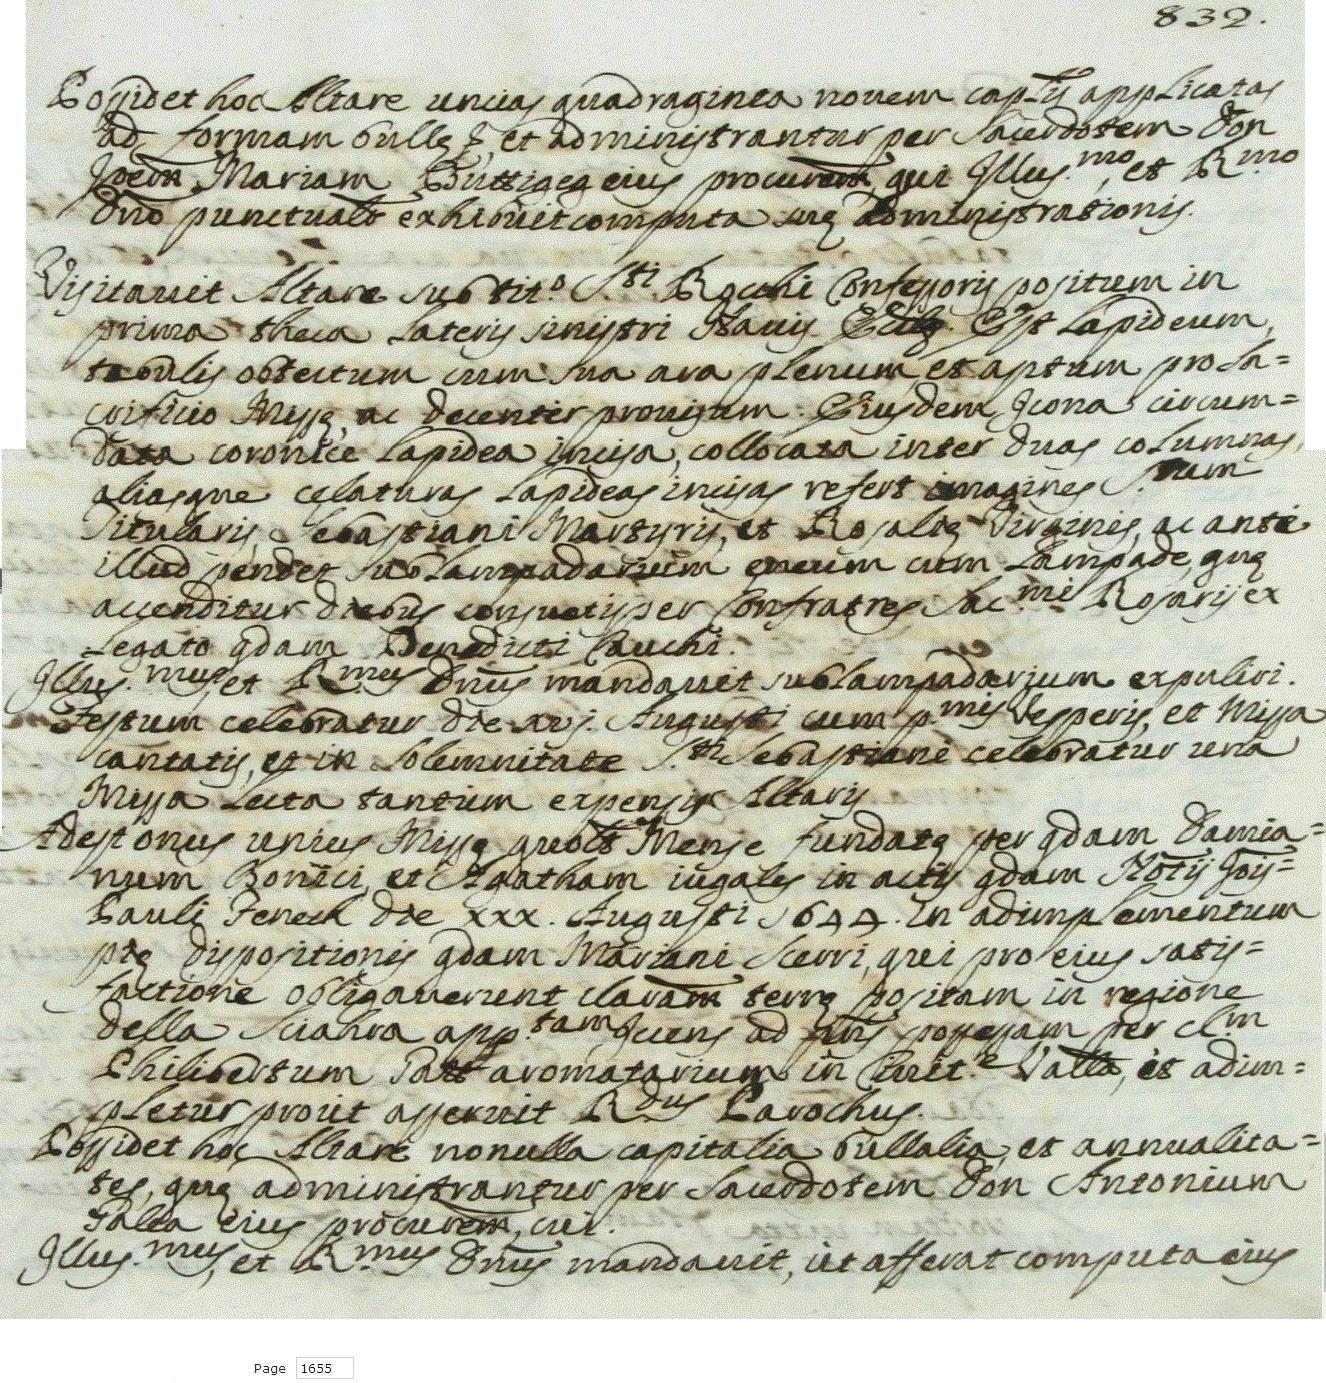 832.
Possidet hoc Altare uncias quadraginta novem capლis applicatas
ad formam bullę &, et administrantur per Sacerdotem Don
Joem Mariam Buttigeg eius procurem, qui Illus.mo, et R.mo
Dno punctualr exhibuit computa suę administrationis.
Visitavit Altare sub tit.o S.ti Rocchi Confessoris positum in
prima theca Lateris sinistri Navis Eccłę. Est Lapideum,
tabulis obtectum cum sua ara plenum et aptum pro sa=
crificio Missę, ac decenter provisum. Eiusdem Icona circum=
data coronice Lapidea incisa, collocata inter duas columnas,
aliasque celaturas Lapideas incisas refert imagines S.rum
Titularis, Sebastiani Martyris, et Rosalię Virginis, ac ante
illud pendet sublampadarium eneum cum Lampade, quę
accenditur diebus consuetis per Confratres Sac.mi Rosarij ex
Legato qdam Benedicti Cauchi.
Illus.mus, et R.mus Dnus mandavit sublampadarium expoliri.
Festum celebratur die xvi. Augusti cum p.mis Vesperis, et Missa
cantatis, et in solemnitate S.ti Sebastiani celebratur una
Missa Lecta tantum expensis Altaris
Adest onus unius Missę quolt Mense fundatę per qdam Damia=
num Bonici, et Agatham iugales in actis qdam Notij Jois=
Pauli Fenech die xxx. Augusti 1644. in adimplementum
pię dispositionis qdam Mariani Scerri, qui pro eius satis=
factione obligaverunt clavam terrę positam in regione
della Sciahra app.tam Iuens ad pns possessam per clm
Philibertum aromatarium in Civit.e Valłta, et adim=
pletur prout asseruit R.dus Parochus.
Possidet hoc Altare nonulla capitalia bullalia, et annualita=
tes, quę administrantur per Sacerdotem Don Antonium
Galea eius procurem, cui.
Illus.mus, et R.mus Dnus mandavit, ut afferat computa eius
Page 1655